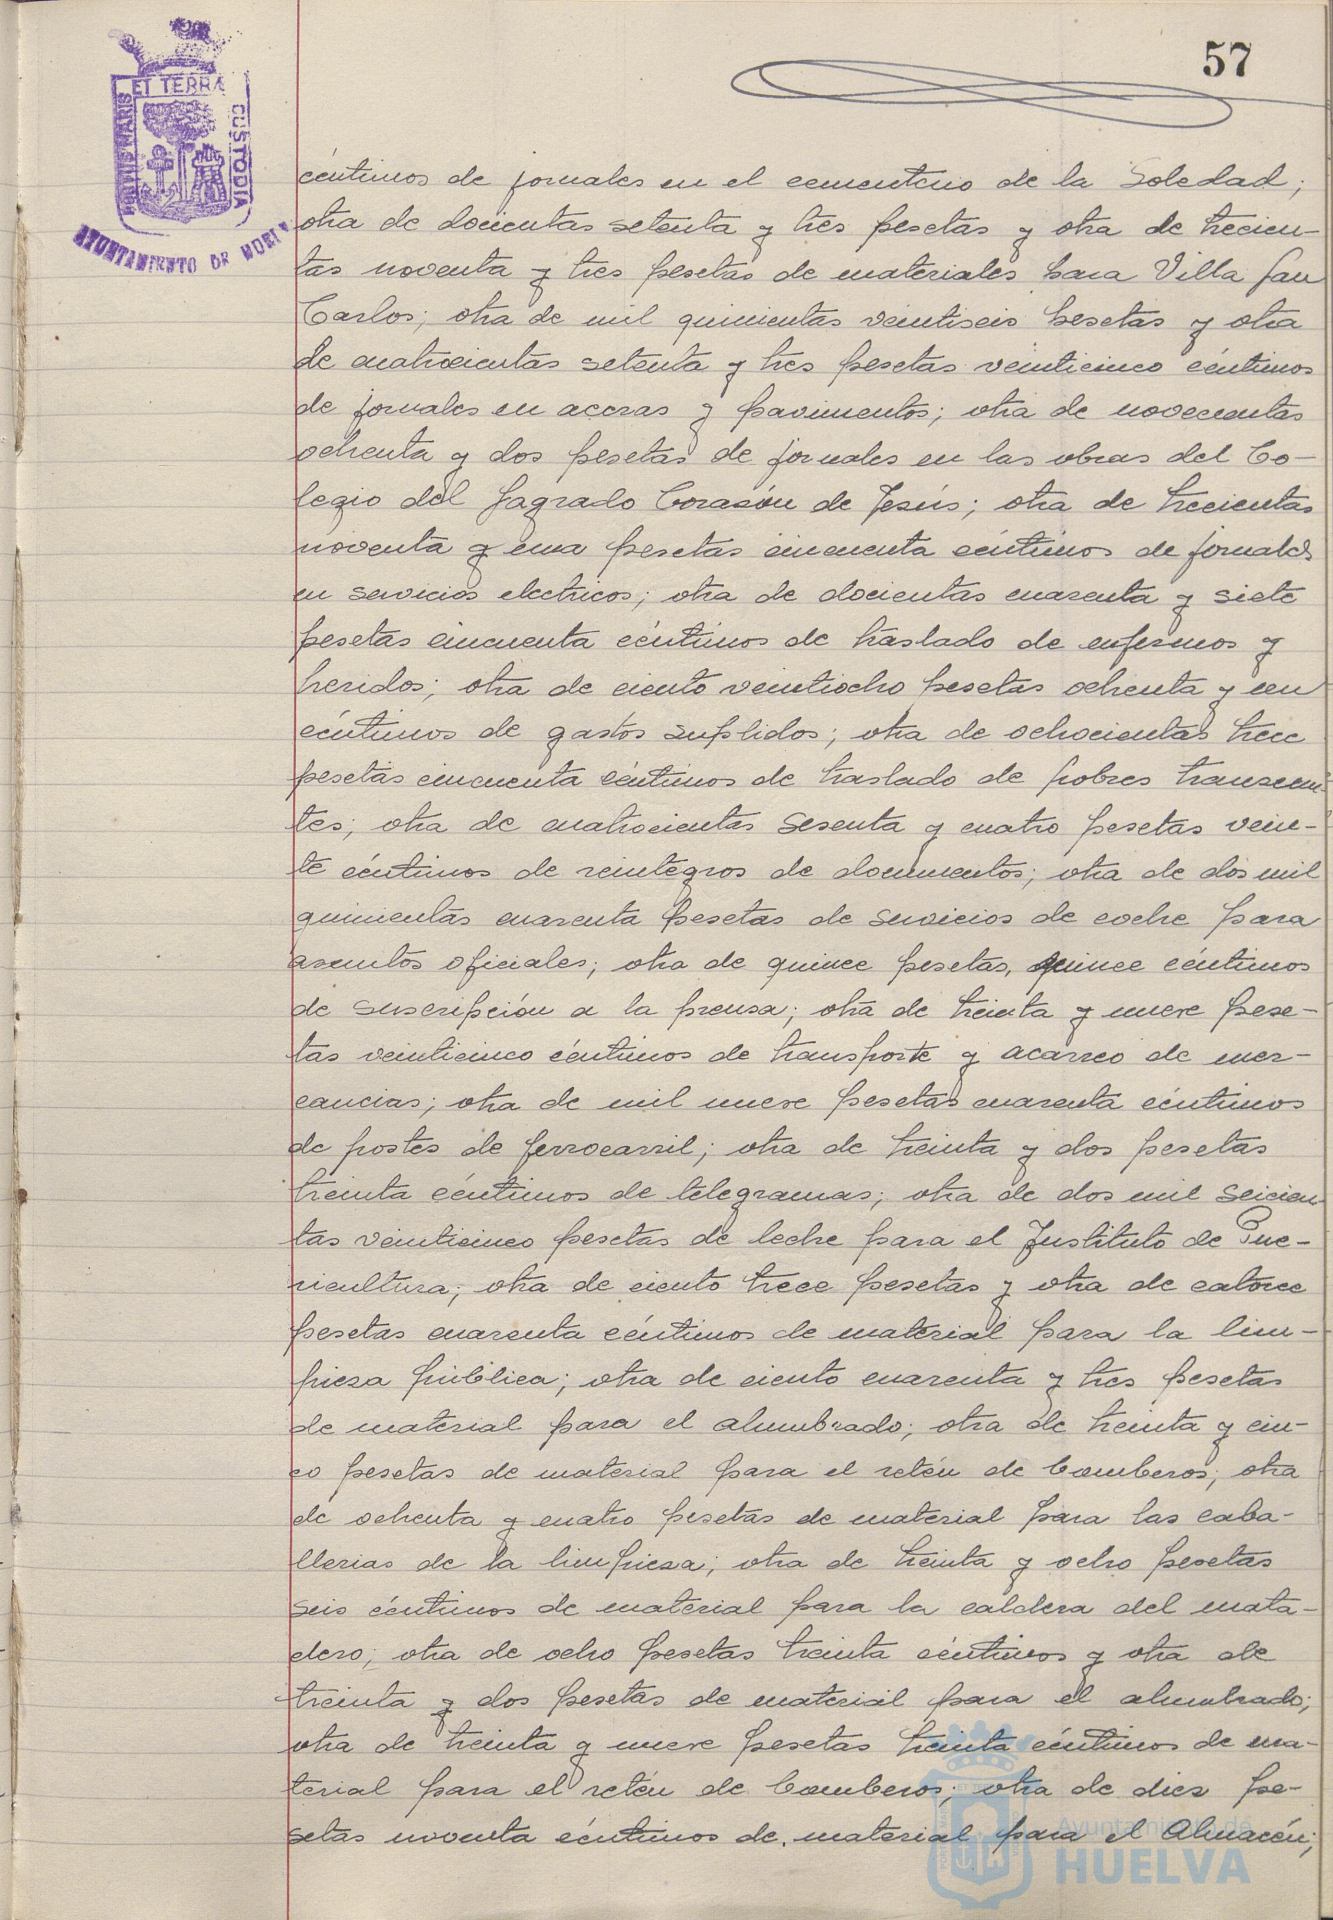 57
PORTUS MARIS ET TERRA CUSTODIA
AYUNTAMIENTO DE HUELVA
céntimos de jornales en el cementerio de la Soledad;
otra de docientas setenta y tres pesetas y otra de trecien-
tas noventa y tres pesetas de materiales para Villa San
Carlos; otra de mil quinientas veintiseis pesetas y otra
de cuatrocientas setenta y tres pesetas veinticinco céntimos
de jornales en aceras y pavimentos; otra de novecientas
ochenta y dos pesetas de jornales en las obras del Co-
legio del Sagrado Corazón de Jesús; otra de trecientas
noventa y una pesetas cincuenta céntimos de jornales
en servicios electricos; otra de docientas cuarenta y siete
pesetas cincuenta céntimos de traslado de enfermos y
heridos; otra de ciento veintiocho pesetas ochenta y un
céntimos de gastos suplidos; otra de ochocientas trece
pesetas cincuenta céntimos de traslado de pobres transeun-
tes; otra de cuatrocientas sesenta y cuatro pesetas vein-
te céntimos de reintegros de documentos; otra de dos mil
quinientas cuarenta pesetas de servicios de coche para
asuntos oficiales; otra de quince pesetas, quince céntimos
de suscripción a la prensa; otra de treinta y nueve pese-
tas veinticinco céntimos de transporte y acarreo de mer-
cancias; otra de mil nueve pesetas cuarenta céntimos
de postes de ferrocarril; otra de treinta y dos pesetas
treinta céntimos de telegramas; otra de dos mil seicien-
tas veinticinco pesetas de leche para el Instituto de Pue-
ricultura; otra de ciento trece pesetas y otra de catorce
pesetas cuarenta céntimos de material para la lim-
pieza pública; otra de ciento cuarenta y tres pesetas
de material para el alumbrado; otra de treinta y cin-
co pesetas de material para el retén de bomberos; otra
de ochenta y cuatro pesetas de material para las caba-
llerias de la limpieza; otra de treinta y ocho pesetas
seis céntimos de material para la caldera del mata-
dero; otra de ocho pesetas treinta céntimos y otra de
treinta y dos pesetas de material para el alumbrado;
otra de treinta y nueve pesetas treinta céntimos de ma-
terial para el retén de bomberos; otra de diez pe-
setas noventa céntimos de material para el Almacén;
Ayuntamiento de
HUELVA